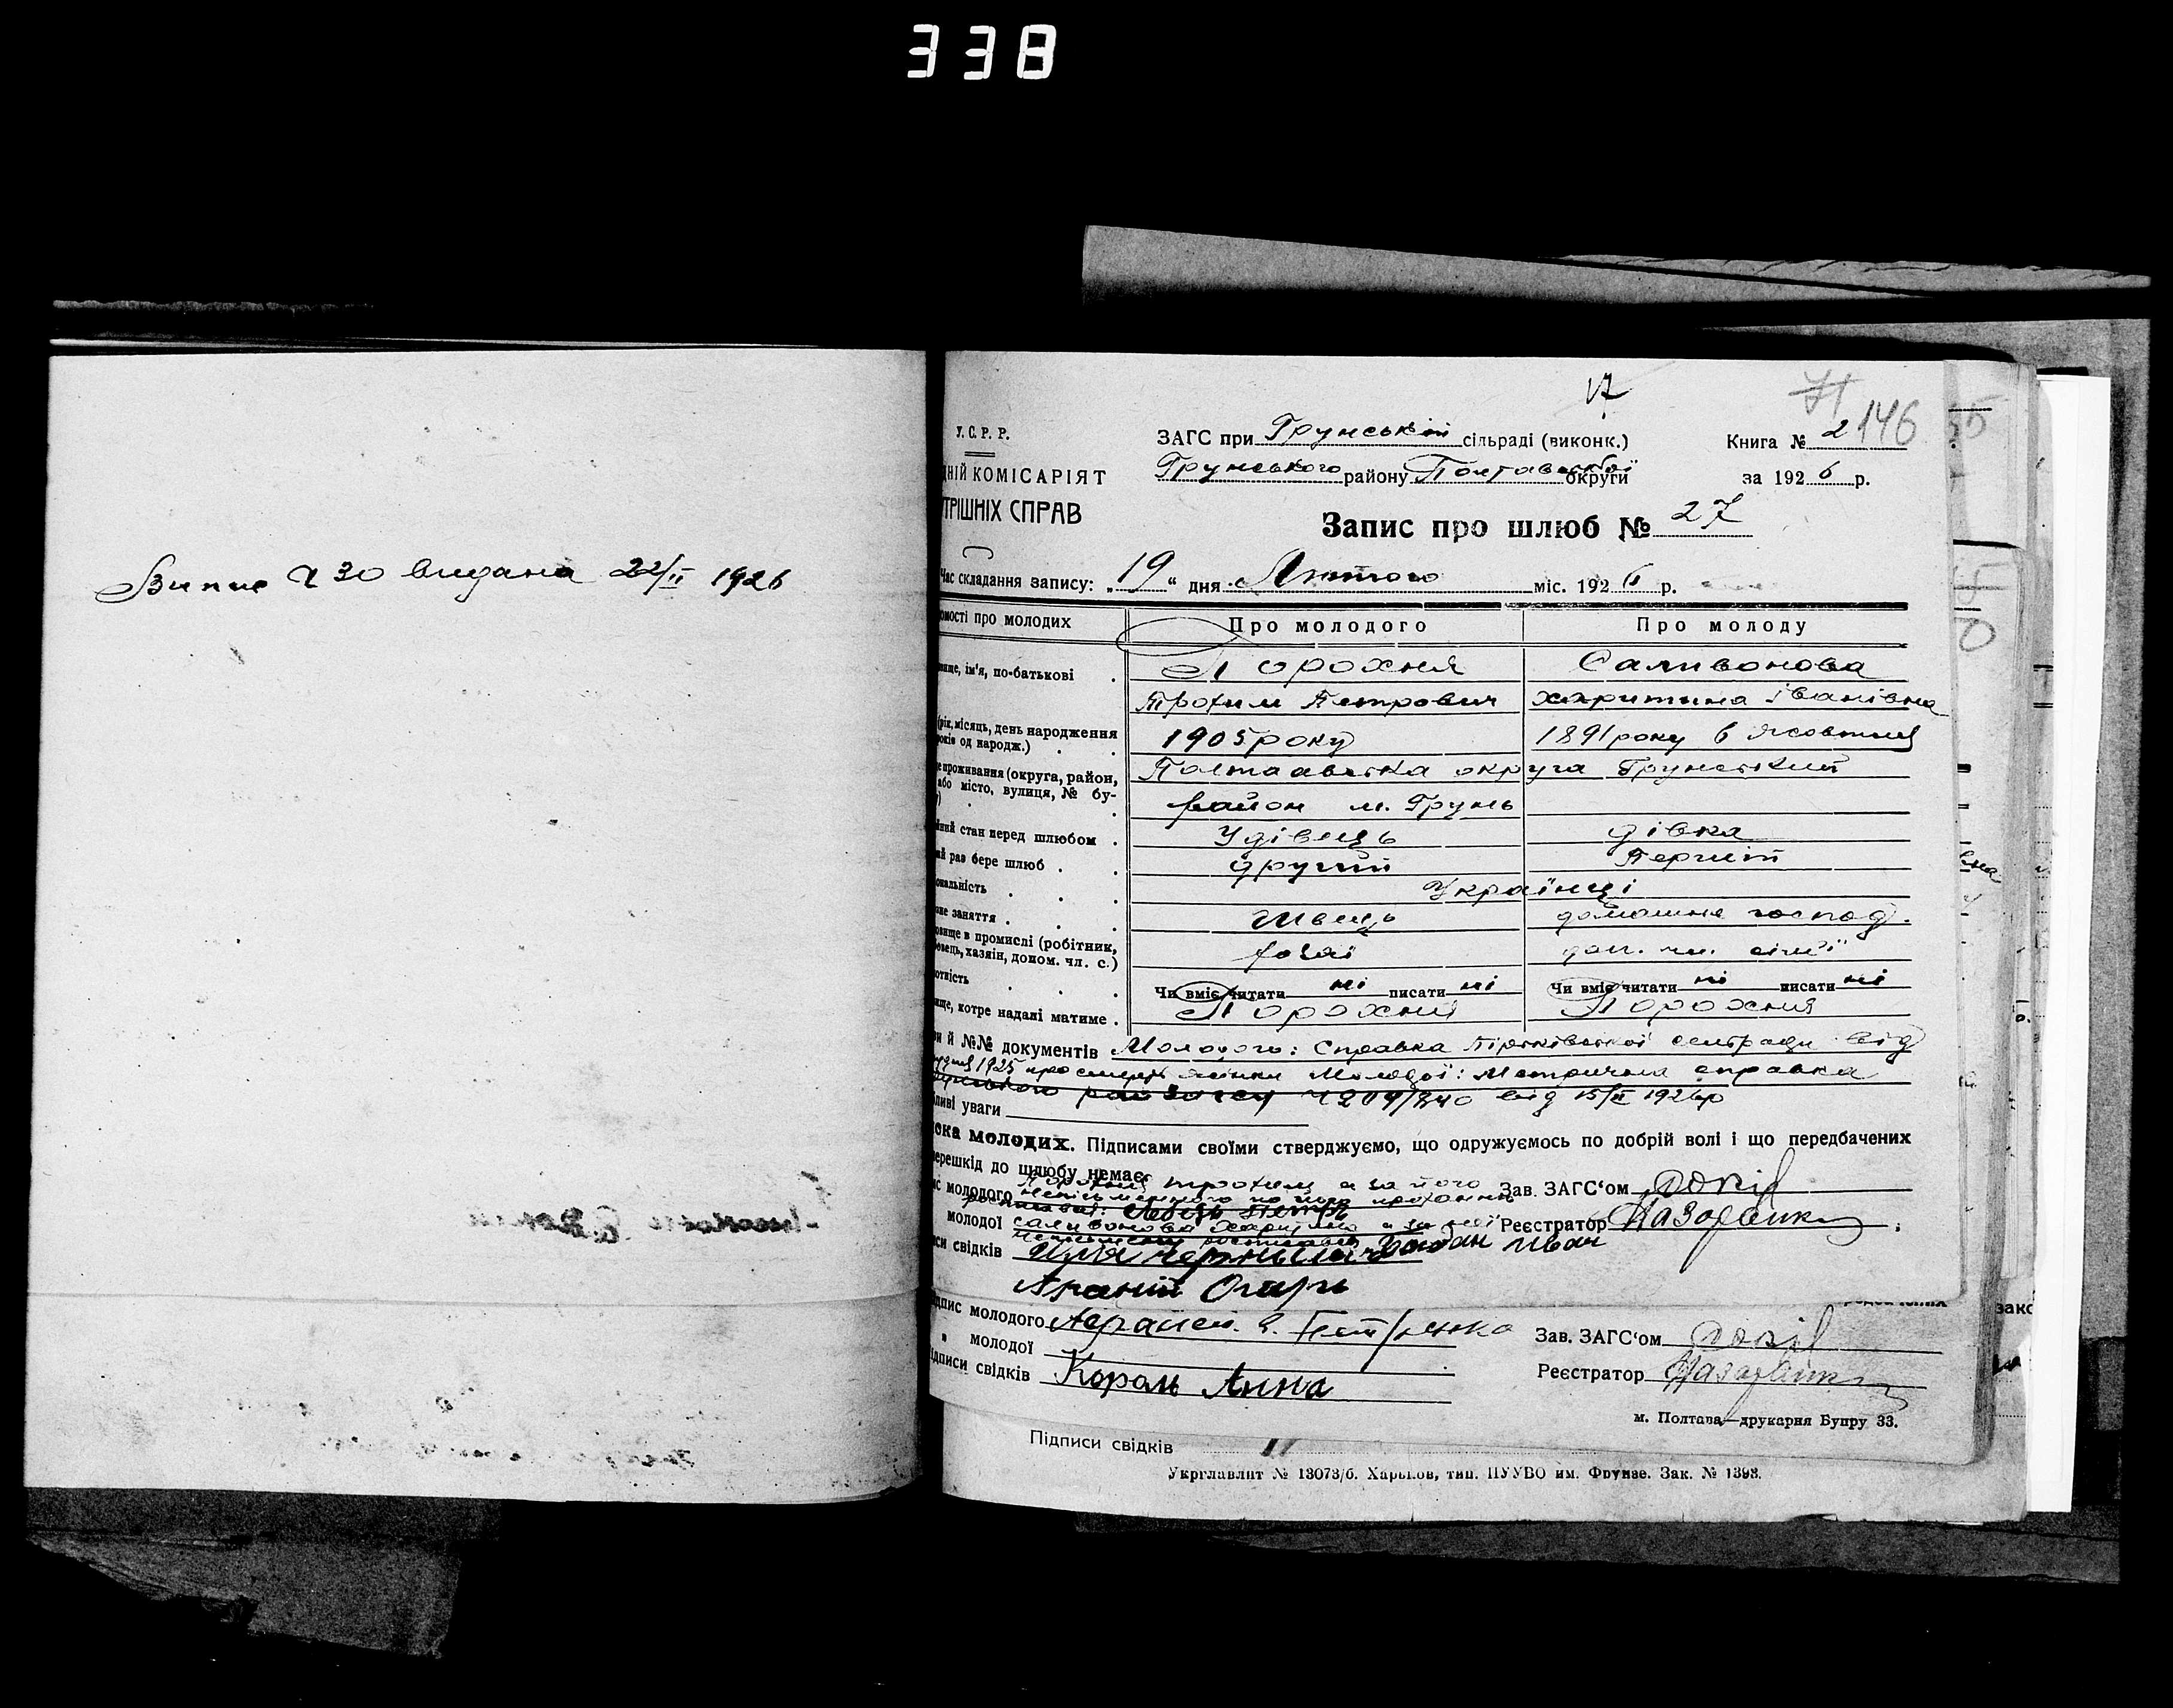 338
Випис Ч 30 видана 22/II 1926
17
71 146
У. С. Р. Р.
ДНІЙ КОМІСАРІЯТ
ТРІШНІХ СПРАВ
ЗАГС при Грунській сільраді (виконк.)
Грунського району Полтавської округи
Книга № 2
за 1926 р.
Запис про шлюб № 27
Час складання запису: „19“ дня Лютого міс. 1926 р.
омості про молодих Про молодого Про молоду
вище, ім'я, по-батькові . Порохня Саливонова
Трохим Петрович Харитина Іванівна
(рік, місяць, день народження
років од народж.) . . 1905 року 1891 року 6 Жовтня
е проживання (округа, район,
або місто, вулиця, № бу-
) . . Полтавська округа Грунський
район м. Грунь
йний стан перед шлюбом . Удівець дівка
ий раз бере шлюб . . другий Перший
ональність . . . Українці
вне заняття . . . Швець домашнє господ.
овище в промислі (робітник,
бовець, хазяїн, допом. чл. с.) хазяї доп. чл. сім'ї
отність . . . Чи вміє читати ні писати ні Чи вміє читати ні писати ні
ище, котре надалі матиме . Порохня Порохня
и й №№ документів Молодого: Справка сельради від
1925 про смерть жінки Молодої: Метрична справка
Ч 209/840 від 15/II 1926 р
ливі уваги
ска молодих. Підписами своїми стверджуємо, що одружуємось по добрій волі і що передбачених
ерешкід до шлюбу немає.
ис молодого Порохня Трохим а за його
неписьменного по його проханню
Зав. ЗАГС'ом
молодої Саливонова Харитина а за неї
Реєстратор
си свідків Богдан Іван
Ананій Огирь
ідпис молодого Петренко
Зав. ЗАГС'ом
„ молодої
Реєстратор
ідписи свідків Король Анна
м. Полтава—друкарня Бупру 33.
Підписи свідків
Укрглавлит № 13073/б. Харьков, тип. ПУУВО им. Фрунзе. Зак. № 1398.